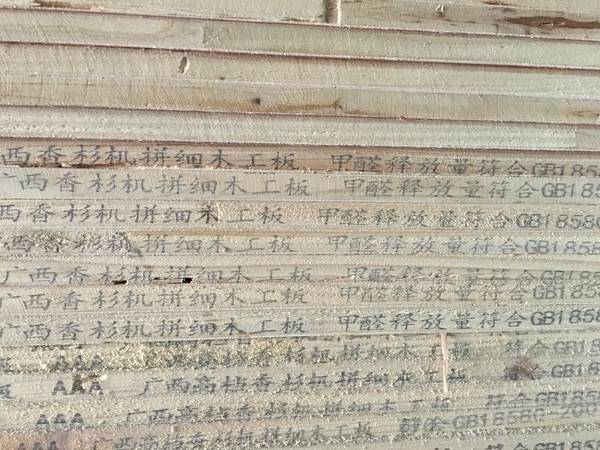 西香杉机拼细木工板 甲醛释放量符合GB1858
广西香杉机拼细木工板 甲醛释放量符合GB1858
西香杉机拼细木工板 甲醛释放量符合GB18580
西香杉机拼细木工板 甲醛释放量符合GB1858
广西香杉机拼细木工板 甲醛释放量符合GB185
广西香杉机拼细木工板 甲醛释放量符合GB1858
广西香杉机拼细木工板 甲醛释放量符合GB1858
板 AAA 香杉机拼细木工板 符合GB185
板 AAA 广西高档香杉机拼细木工板 符合GB1858
AAA 广西高档香杉机拼细木工板 符合GB18580-200
AAA 广西高档香杉机拼细木工板 符合GB1858